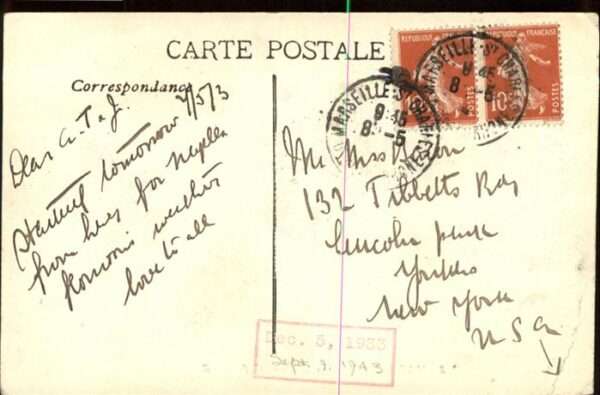 CARTE POSTALE
Correspondance
7/5/3
Dear A.T & J.
tomorrow
from here for Naples
weather
love to all
REPUBLIQUE FRANÇAISE
POSTES
10c
MARSEILLE-ST CHARLES
9 45
8 -5
MARSEILLE-ST CHARLES
9 45
8 -5
132 Tibbetts Rd
Lincoln Park
Yonkers
New York
U S A
Dec. 5, 1933
Sept. 9. 1943